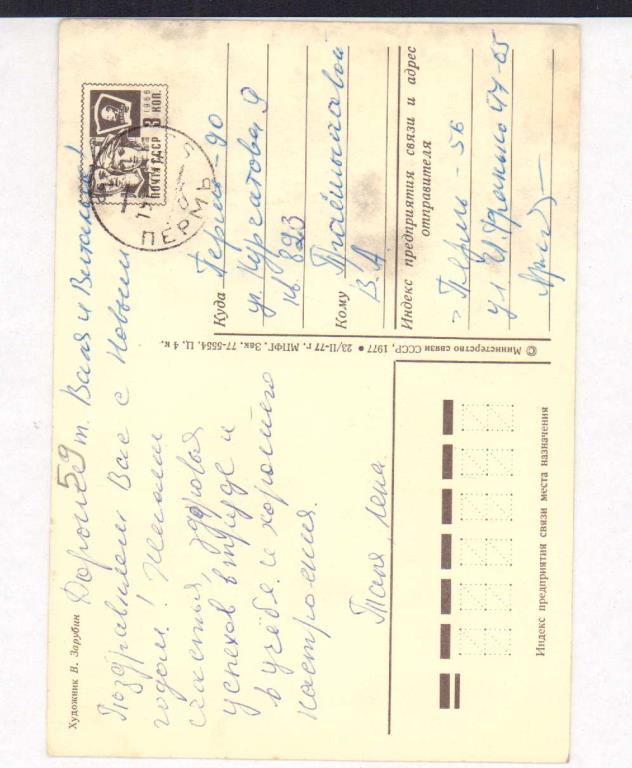 Художник В. Зарубин
59
Дорогие т. Валя и Виталий!
Поздравляем Вас с Новым
годом! Желаем
счастья, здоровья
успехов в труде и
в учёбе и хорошего
настроения.
Таня, Лена
© Министерство связи СССР, 1977 • 23/II-77 г. МПФГ. Зак. 77-5554. Ц. 4 к.
1966
3 КОП.
ПОЧТА СССР
ПЕРМЬ
Куда Пермь-90
ул. Курчатова, 9
кв 823
Кому
В. А.
Индекс предприятия связи и адрес
отправителя
Пермь-56
ул И. Франко 44-65
Индекс предприятия связи места назначения